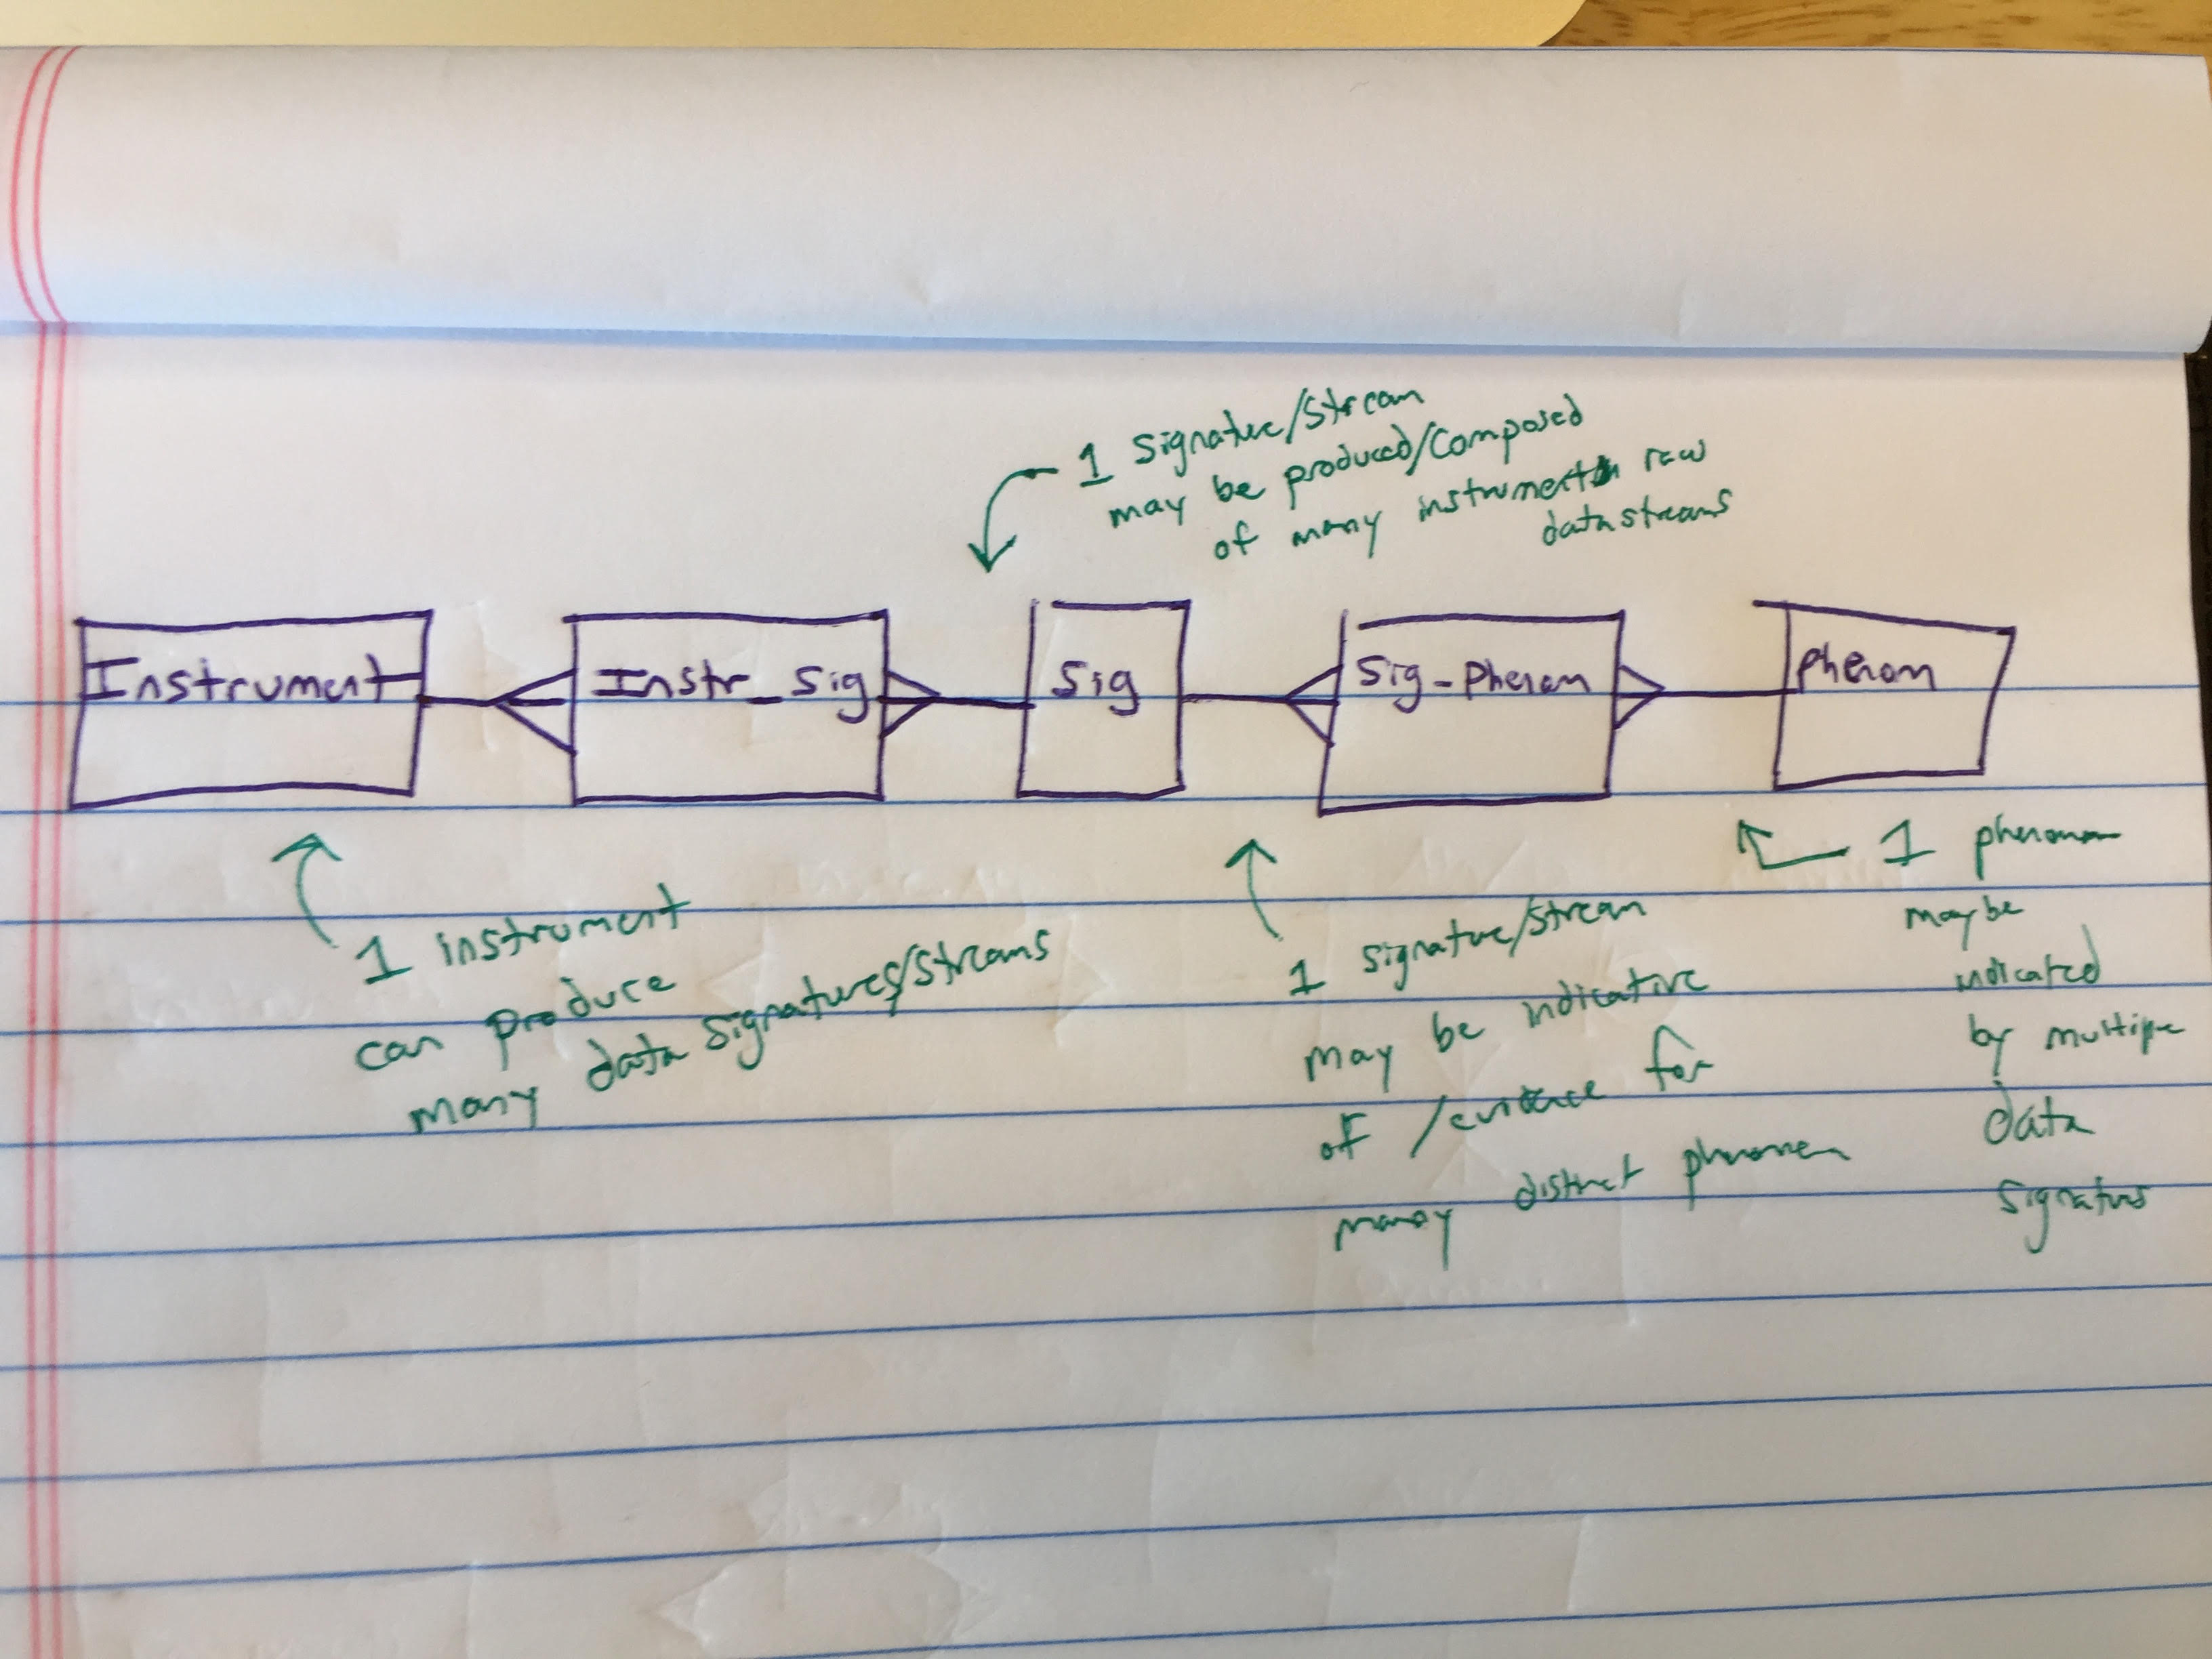 1 Signature/Stream
may be produced/composed
of many instrument raw
datastreams
Instrument
Instr_Sig
Sig
Sig-Phenom
Phenom
1 instrument
can produce
many data signatures/streams
1 signature/stream
may be indicative
of /evidence for
many distinct phenomen
1 phenomen
maybe
indicated
by multiple
data
signatures